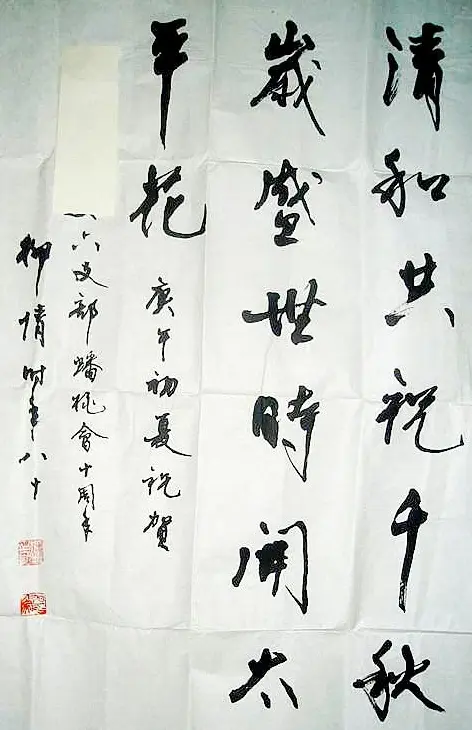 清和共祝千秋
歲盛世時開太
平花
庚午初夏祝賀
六支部蟠桃會十周年
柳倩时年八十